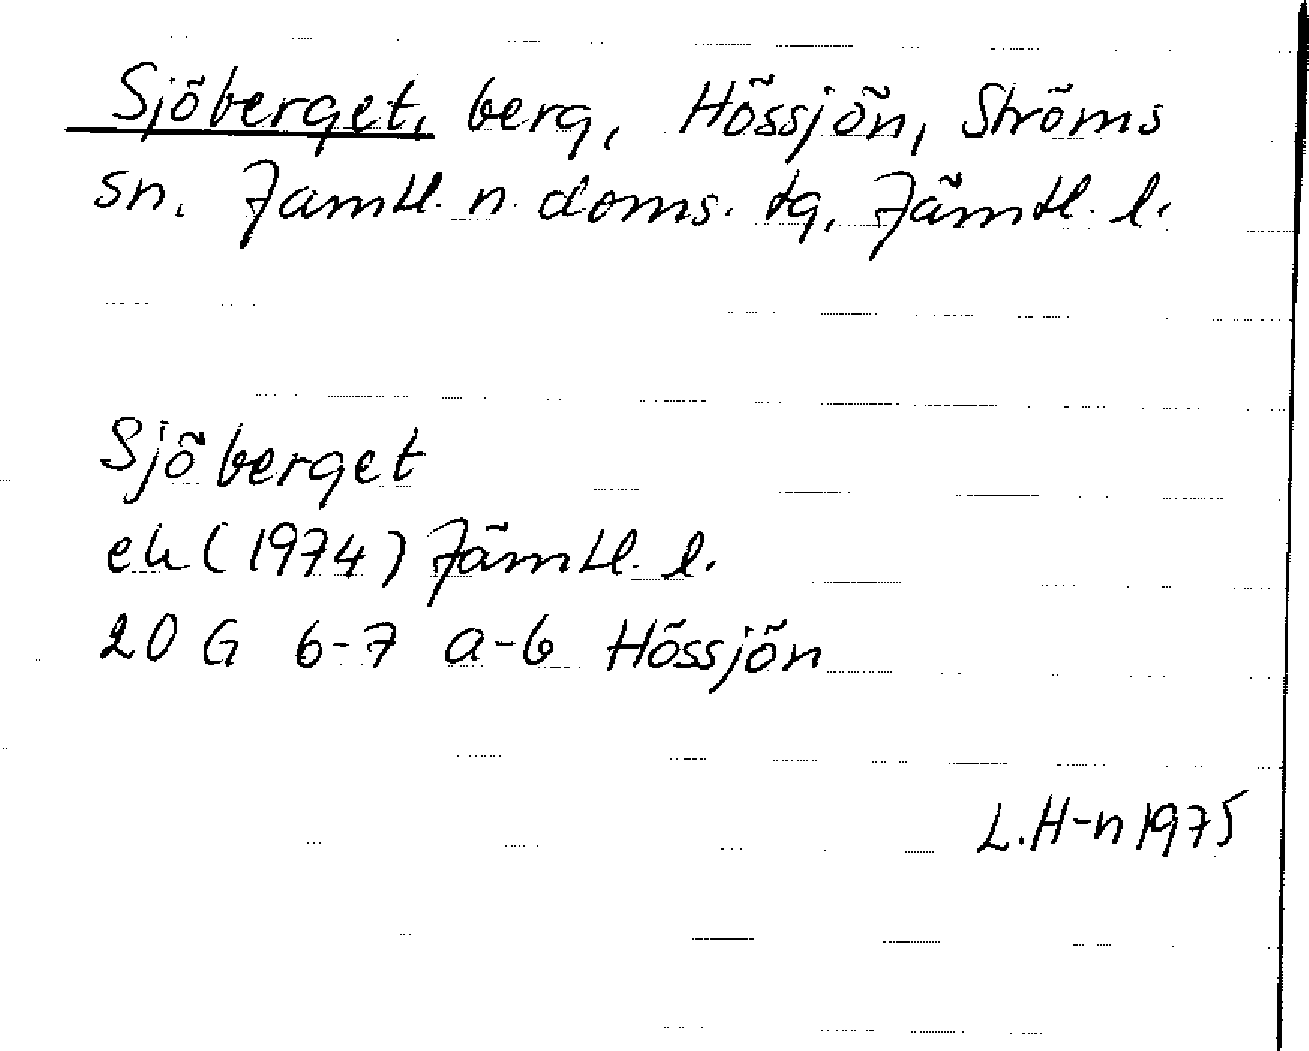 Sjöberget, berg, Hössjön, Ströms
sn. Jämtl. n. doms. tg, Jämtl. l.
Sjöberget
ek (1974) Jämtl. l.
20 G 6-7 a-b Hössjön
L.H-n 1975